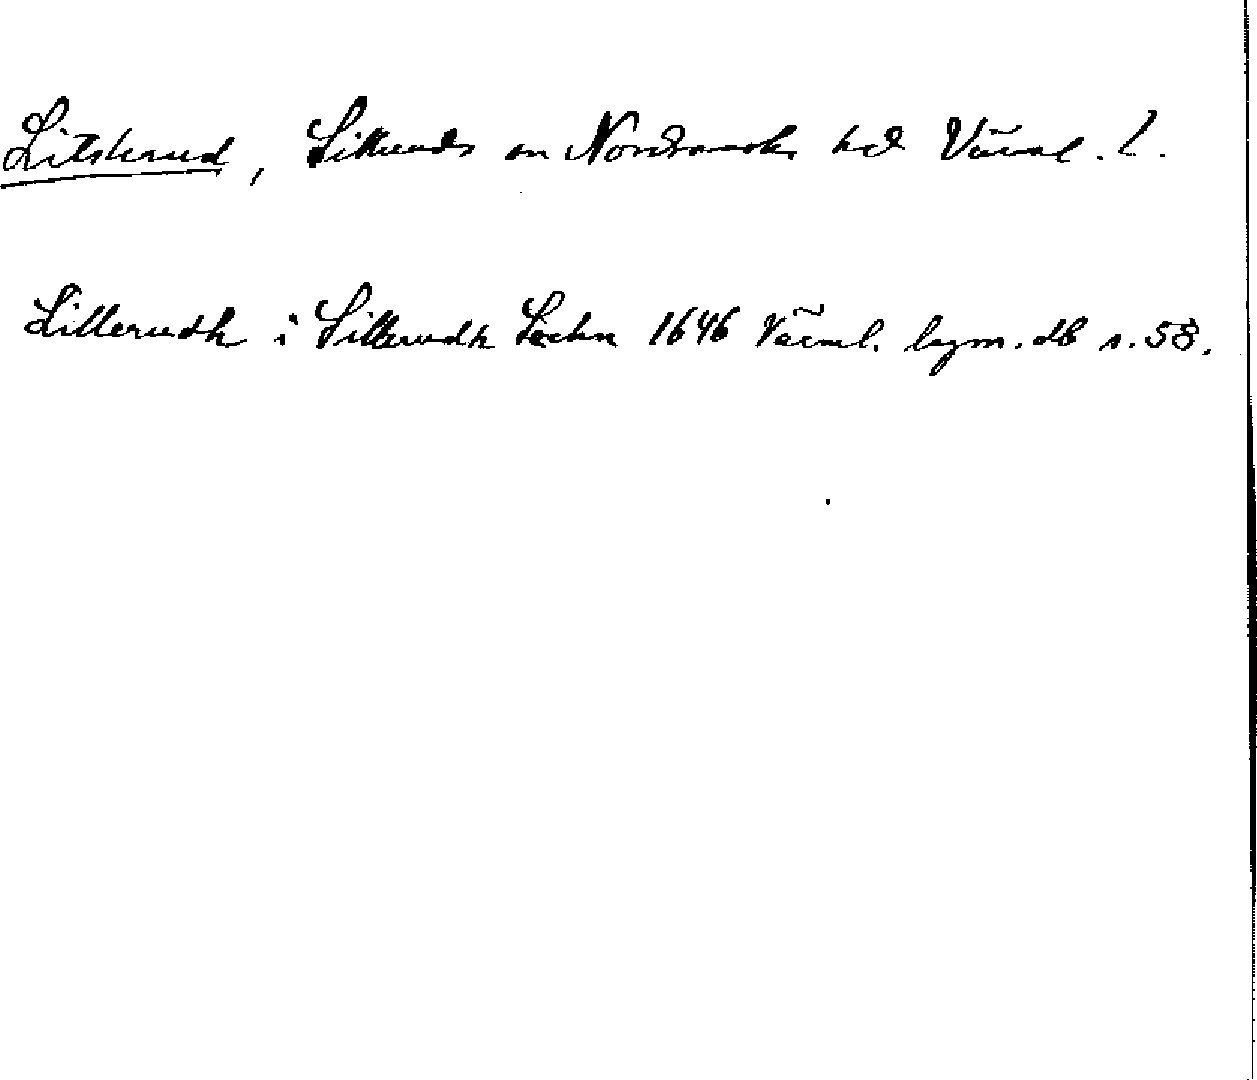 Litskerud, Silleruds sn Nordmarks hd Värml. l.
Lillerudh i Sillerudh Sochn 1646 Värml. lagm. db s. 58.